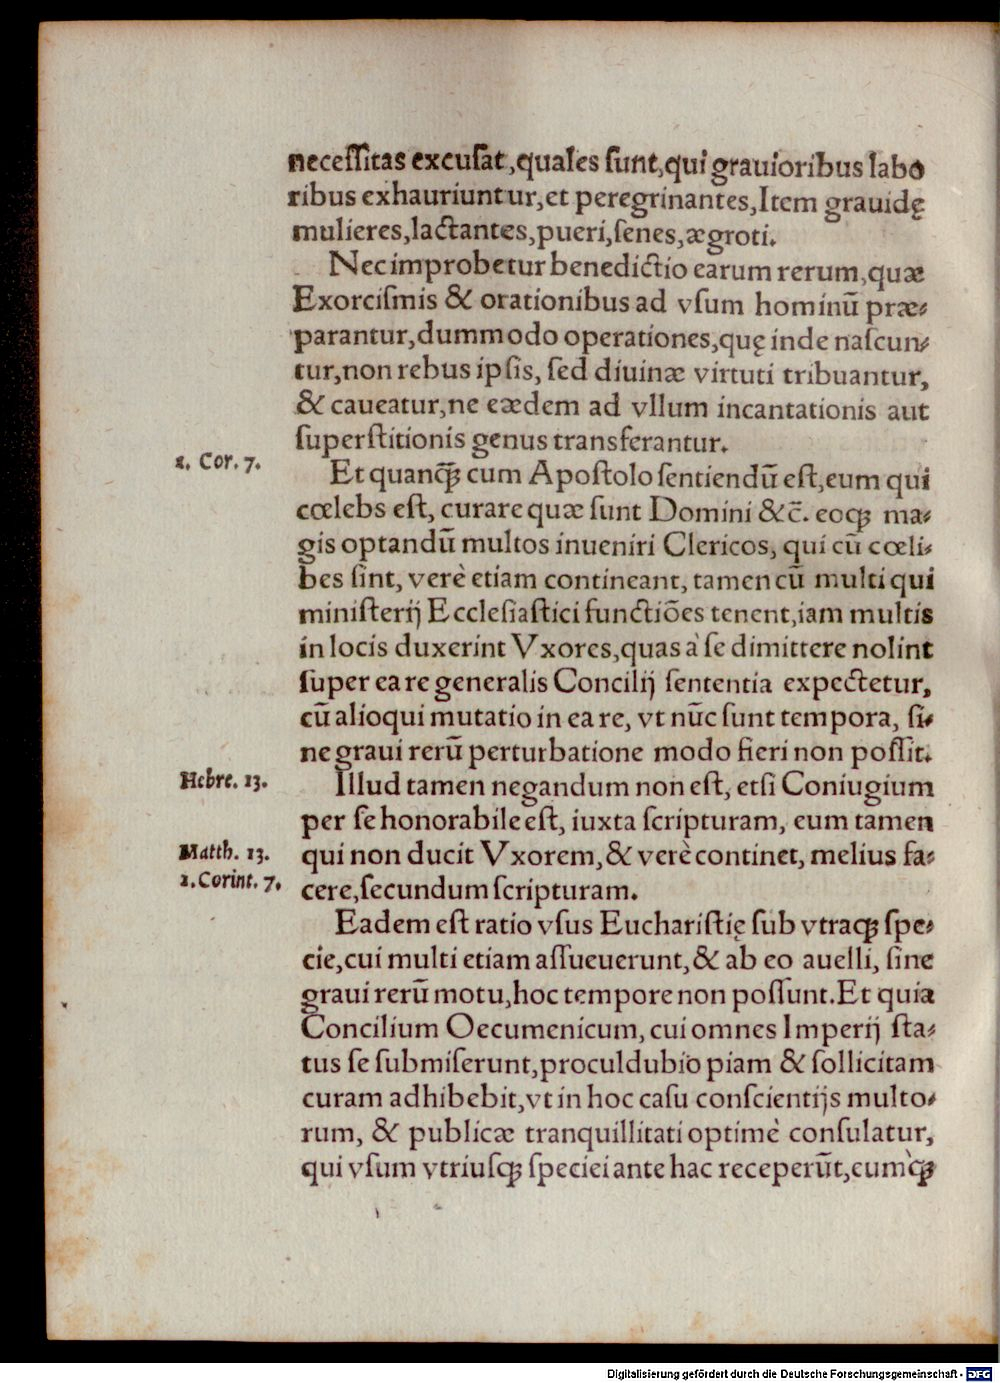 neceſſitas excuſat, quales ſunt, qui grauioribus labo
ribus exhauriuntur, et peregrinantes, Item grauidę
mulieres, lactantes, pueri, ſenes, ægroti.
Nec improbetur benedictio earum rerum, quæ
Exorciſmis & orationibus ad vſum hominū præ-
parantur, dummodo operationes, quę inde naſcun-
tur, non rebus ipſis, ſed diuinæ virtuti tribuantur,
& caueatur, ne eædem ad vllum incantationis aut
ſuperſtitionis genus transferantur.
1. Cor. 7.
Et quanq̄ꝫ cum Apoſtolo ſentiendū eſt, eum qui
cœlebs eſt, curare quæ ſunt Domini &c̄. eoqꝫ ma-
gis optandū multos inueniri Clericos, qui cū cœli-
bes ſint, verè etiam contineant, tamen cū multi qui
miniſterij Eccleſiaſtici functiōes tenent, iam multis
in locis duxerint Vxores, quas à ſe dimittere nolint
ſuper ea re generalis Concilij ſententia expectetur,
cū alioqui mutatio in ea re, vt nūc ſunt tempora, ſi-
ne graui rerū perturbatione modo fieri non poſſit.
Hebre. 13.
Illud tamen negandum non eſt, etſi Coniugium
per ſe honorabile eſt, iuxta ſcripturam, eum tamen
Matth. 13.
qui non ducit Vxorem, & verè continet, melius fa-
1. Corint. 7.
cere, ſecundum ſcripturam.
Eadem eſt ratio vſus Euchariſtię ſub vtraqꝫ ſpe-
cie, cui multi etiam aſſueuerunt, & ab eo auelli, ſine
graui rerū motu, hoc tempore non poſſunt. Et quia
Concilium Oecumenicum, cui omnes Imperij ſta-
tus ſe ſubmiſerunt, proculdubio piam & ſollicitam
curam adhibebit, vt in hoc caſu conſcientijs multo-
rum, & publicæ tranquillitati optimè conſulatur,
qui vſum vtriuſqꝫ ſpeciei ante hac receperūt, eumq̀ꝫ
Digitalisierung gefördert durch die Deutsche Forschungsgemeinschaft - DFG